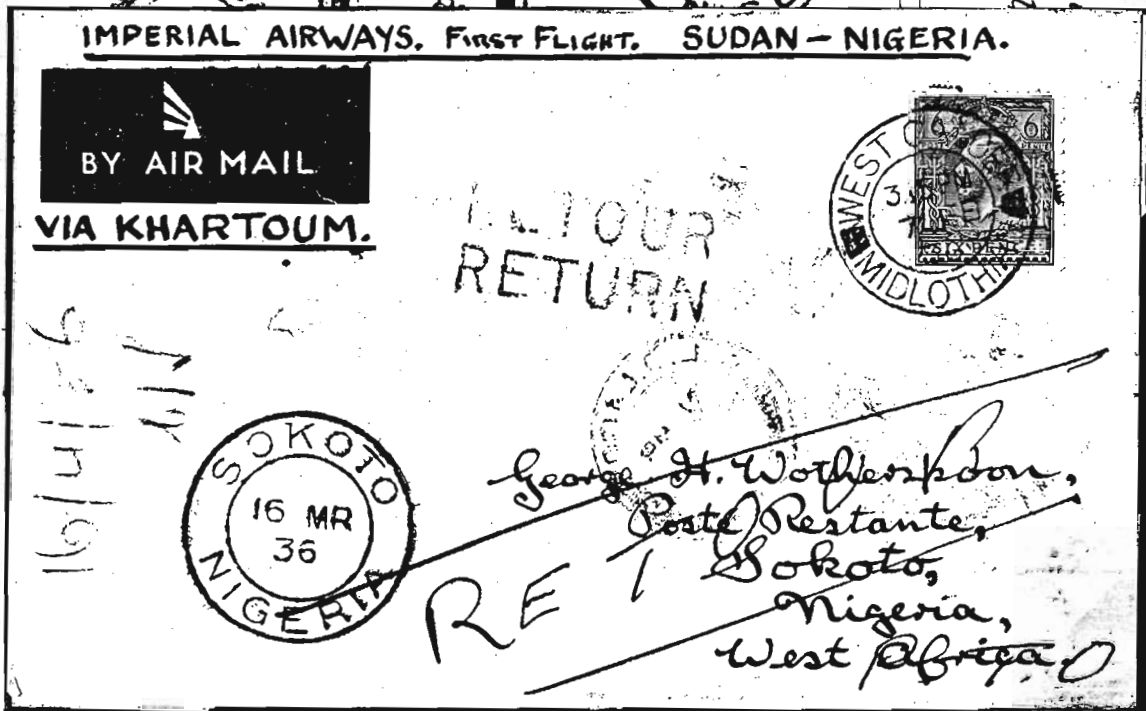 IMPERIAL AIRWAYS. FIRST FLIGHT. SUDAN – NIGERIA.
BY AIR MAIL
VIA KHARTOUM.
6 6
SIX PEN
WEST
MIDLOTHI
RETOUR
RETURN
SOKOTO
16 MR
36
NIGERIA
George H. Wotherspoon,
Poste Restante,
Sokoto,
Nigeria,
West Africa.
RET